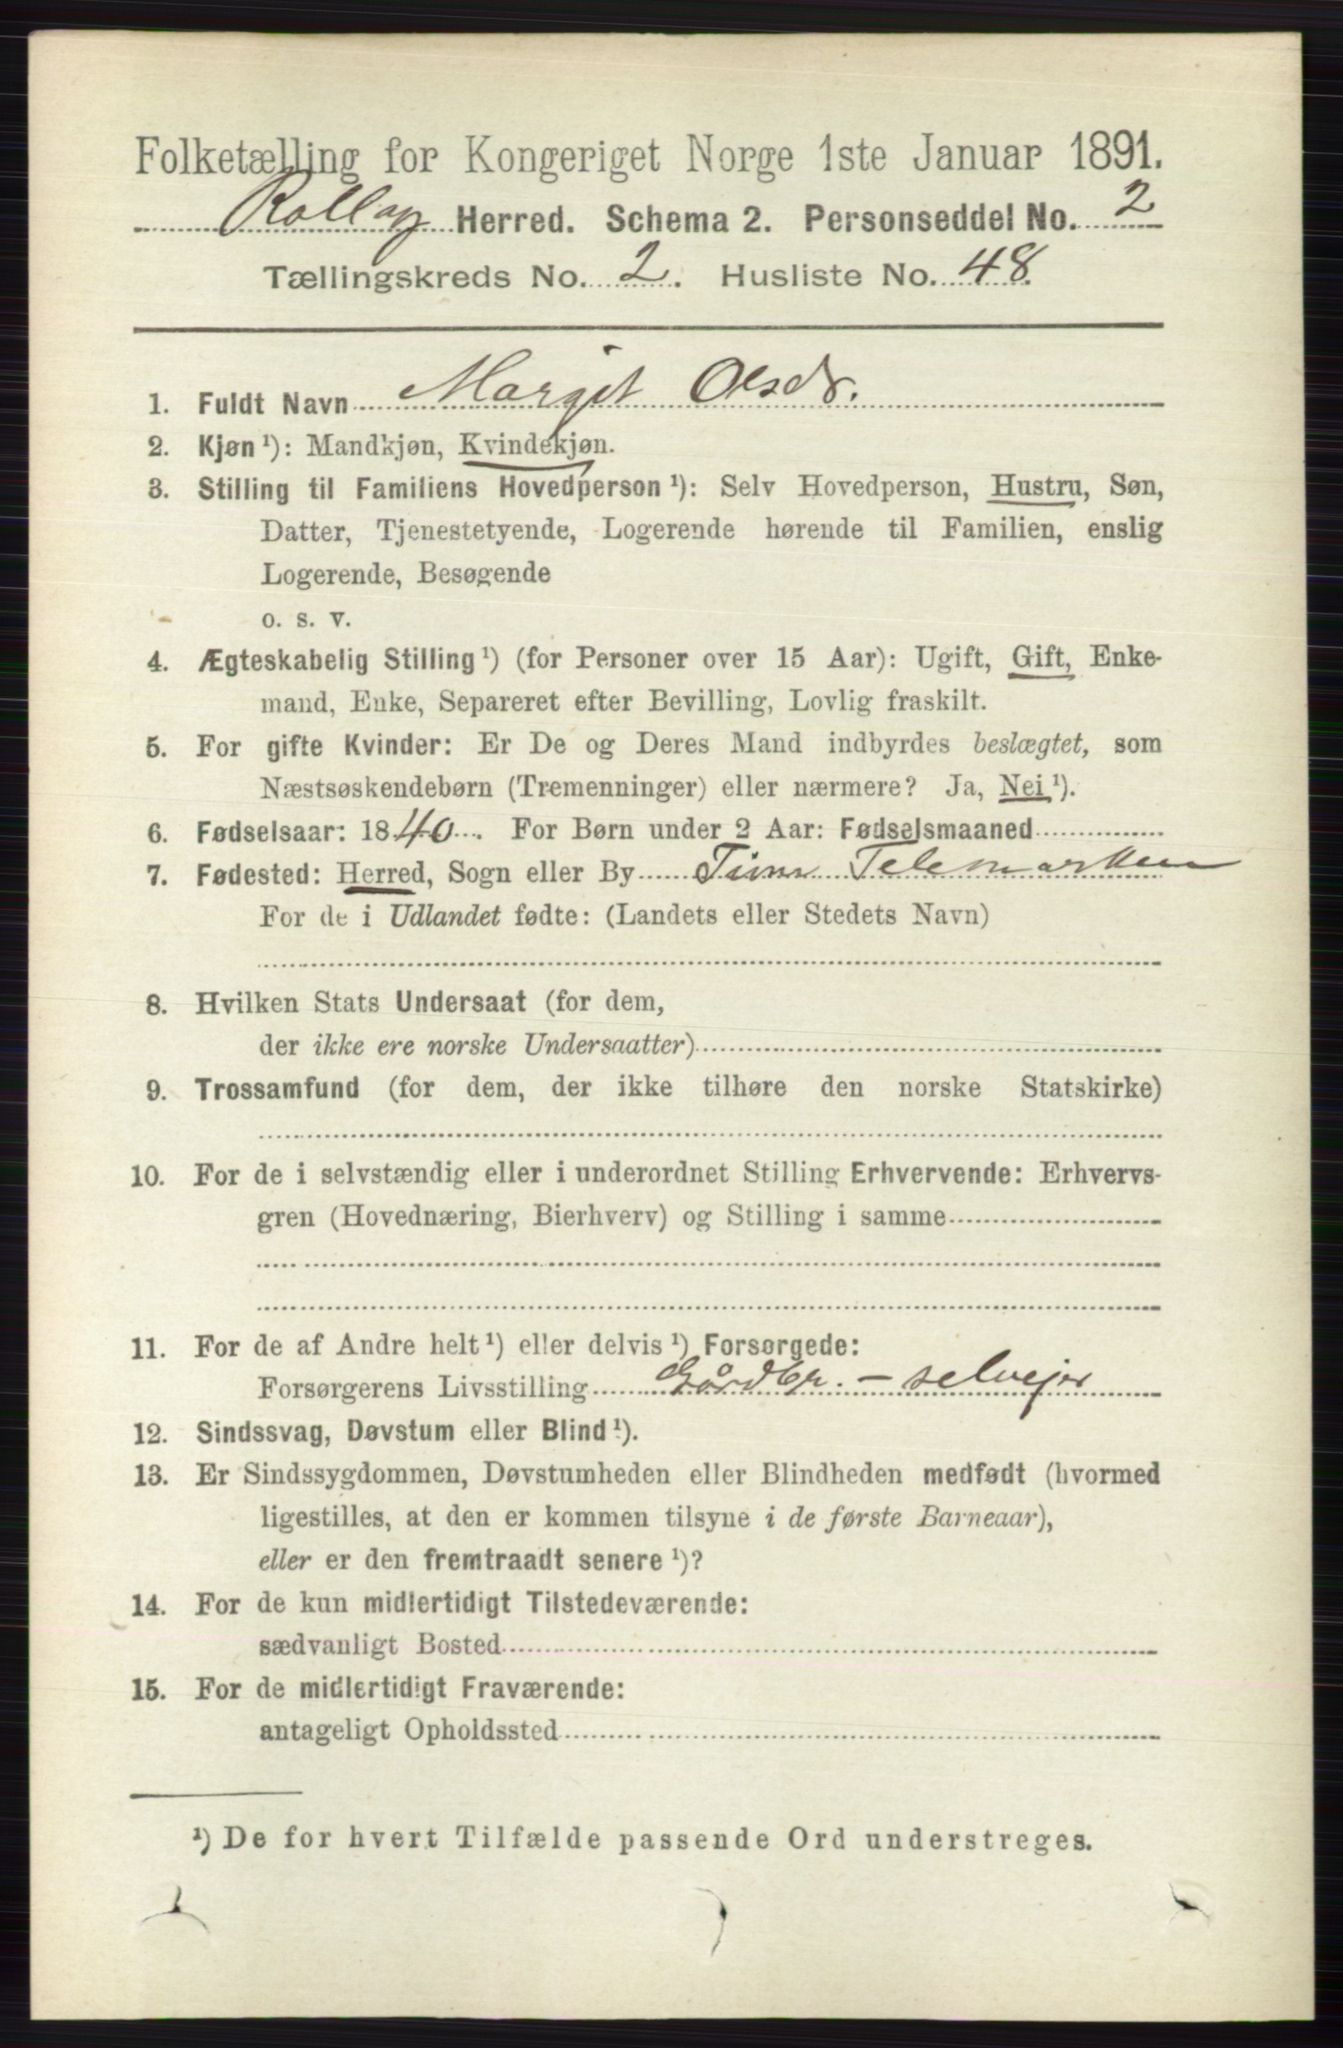 Folketælling for Kongeriget Norge 1ste Januar 1891.
Rollag Herred. Schema 2. Personseddel No. 2
Tællingskreds No. 2. Husliste No. 48.
1. Fuldt Navn Margit Olsdr.
2. Kjøn ¹): Mandkjøn, Kvindekjøn.
3. Stilling til Familiens Hovedperson ¹): Selv Hovedperson, Hustru, Søn,
Datter, Tjenestetyende, Logerende hørende til Familien, enslig
Logerende, Besøgende
o. s. v.
4. Ægteskabelig Stilling ¹) (for Personer over 15 Aar): Ugift, Gift, Enke-
mand, Enke, Separeret efter Bevilling, Lovlig fraskilt.
5. For gifte Kvinder: Er De og Deres Mand indbyrdes beslægtet, som
Næstsøskendebørn (Tremenninger) eller nærmere? Ja, Nei ¹).
6. Fødselsaar: 1840. For Børn under 2 Aar: Fødselsmaaned
7. Fødested: Herred, Sogn eller By Tinn Telemarken
For de i Udlandet fødte: (Landets eller Stedets Navn)
8. Hvilken Stats Undersaat (for dem,
der ikke ere norske Undersaatter)
9. Trossamfund (for dem, der ikke tilhøre den norske Statskirke)
10. For de i selvstændig eller i underordnet Stilling Erhvervende: Erhvervs-
gren (Hovednæring, Bierhverv) og Stilling i samme
11. For de af Andre helt ¹) eller delvis ¹) Forsørgede:
Forsørgerens Livsstilling Gårdbr. - selvejer
12. Sindssvag, Døvstum eller Blind ¹).
13. Er Sindssygdommen, Døvstumheden eller Blindheden medfødt (hvormed
ligestilles, at den er kommen tilsyne i de første Barneaar),
eller er den fremtraadt senere ¹)?
14. For de kun midlertidigt Tilstedeværende:
sædvanligt Bosted
15. For de midlertidigt Fraværende:
antageligt Opholdssted
¹) De for hvert Tilfælde passende Ord understreges.